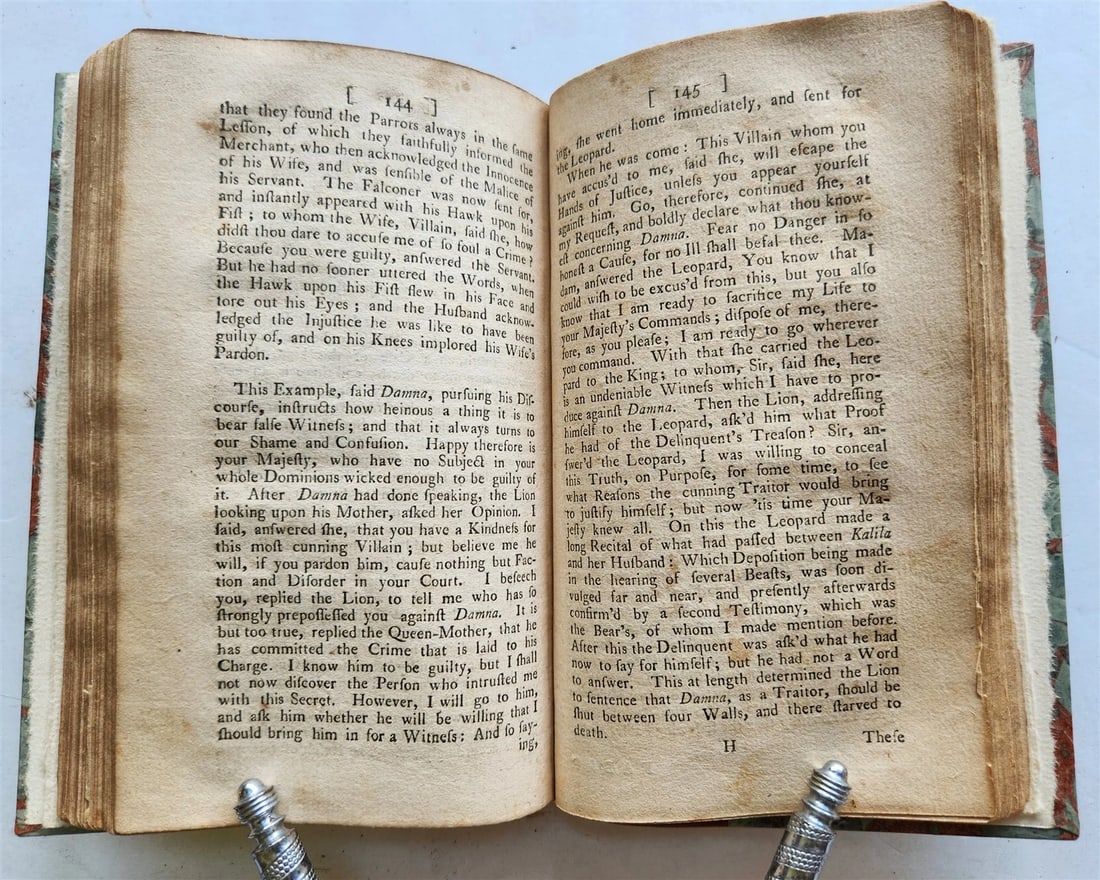 [ 144 ]
that they found the Parrots always in the ſame
Leſſon, of which they faithfully informed the
Merchant, who then acknowledged the Innocence
of his Wife, and was ſenſible of the Malice of
his Servant. The Falconer was now ſent for,
and inſtantly appeared with his Hawk upon his
Fiſt; to whom the Wife, Villain, ſaid ſhe, how
didſt thou dare to accuſe me of ſo foul a Crime?
Becauſe you were guilty, anſwered the Servant.
But he had no ſooner uttered the Words, when
the Hawk upon his Fiſt flew in his Face and
tore out his Eyes; and the Huſband acknow-
ledged the Injuſtice he was like to have been
guilty of, and on his Knees implored his Wife's
Pardon.
This Example, ſaid Damna, purſuing his Diſ-
courſe, inſtructs how heinous a thing it is to
bear falſe Witneſs; and that it always turns to
our Shame and Confuſion. Happy therefore is
your Majeſty, who have no Subject in your
whole Dominions wicked enough to be guilty of
it. After Damna had done ſpeaking, the Lion
looking upon his Mother, aſked her Opinion. I
ſaid, anſwered ſhe, that you have a Kindneſs for
this moſt cunning Villain; but believe me he
will, if you pardon him, cauſe nothing but Fac-
tion and Diſorder in your Court. I beſeech
you, replied the Lion, to tell me who has ſo
ſtrongly prepoſſeſſed you againſt Damna. It is
but too true, replied the Queen-Mother, that he
has committed the Crime that is laid to his
Charge. I know him to be guilty, but I ſhall
not now diſcover the Perſon who intruſted me
with this Secret. However, I will go to him,
and aſk him whether he will be willing that I
ſhould bring him in for a Witneſs: And ſo ſay-
ing,
[ 145 ]
ing, ſhe went home immediately, and ſent for
the Leopard.
When he was come: This Villain whom you
have accus'd to me, ſaid ſhe, will eſcape the
Hands of Juſtice, unleſs you appear yourſelf
againſt him. Go, therefore, continued ſhe, at
my Requeſt, and boldly declare what thou know-
eſt concerning Damna. Fear no Danger in ſo
honeſt a Cauſe, for no Ill ſhall befal thee. Ma-
dam, anſwered the Leopard, You know that I
could wiſh to be excus'd from this, but you alſo
know that I am ready to ſacrifice my Life to
your Majeſty's Commands; diſpoſe of me, there-
fore, as you pleaſe; I am ready to go wherever
you command. With that ſhe carried the Leo-
pard to the King; to whom, Sir, ſaid ſhe, here
is an undeniable Witneſs which I have to pro-
duce againſt Damna. Then the Lion, addreſſing
himſelf to the Leopard, aſk'd him what Proof
he had of the Delinquent's Treaſon? Sir, an-
ſwer'd the Leopard, I was willing to conceal
this Truth, on Purpoſe, for ſome time, to ſee
what Reaſons the cunning Traitor would bring
to juſtify himſelf; but now 'tis time your Ma-
jeſty knew all. On this the Leopard made a
long Recital of what had paſſed between Kalila
and her Huſband: Which Depoſition being made
in the hearing of ſeveral Beaſts, was ſoon di-
vulged far and near, and preſently afterwards
confirm'd by a ſecond Teſtimony, which was
the Bear's, of whom I made mention before.
After this the Delinquent was aſk'd what he had
now to ſay for himſelf; but he had not a Word
to anſwer. This at length determined the Lion
to ſentence that Damna, as a Traitor, ſhould be
ſhut between four Walls, and there ſtarved to
death.
H Theſe